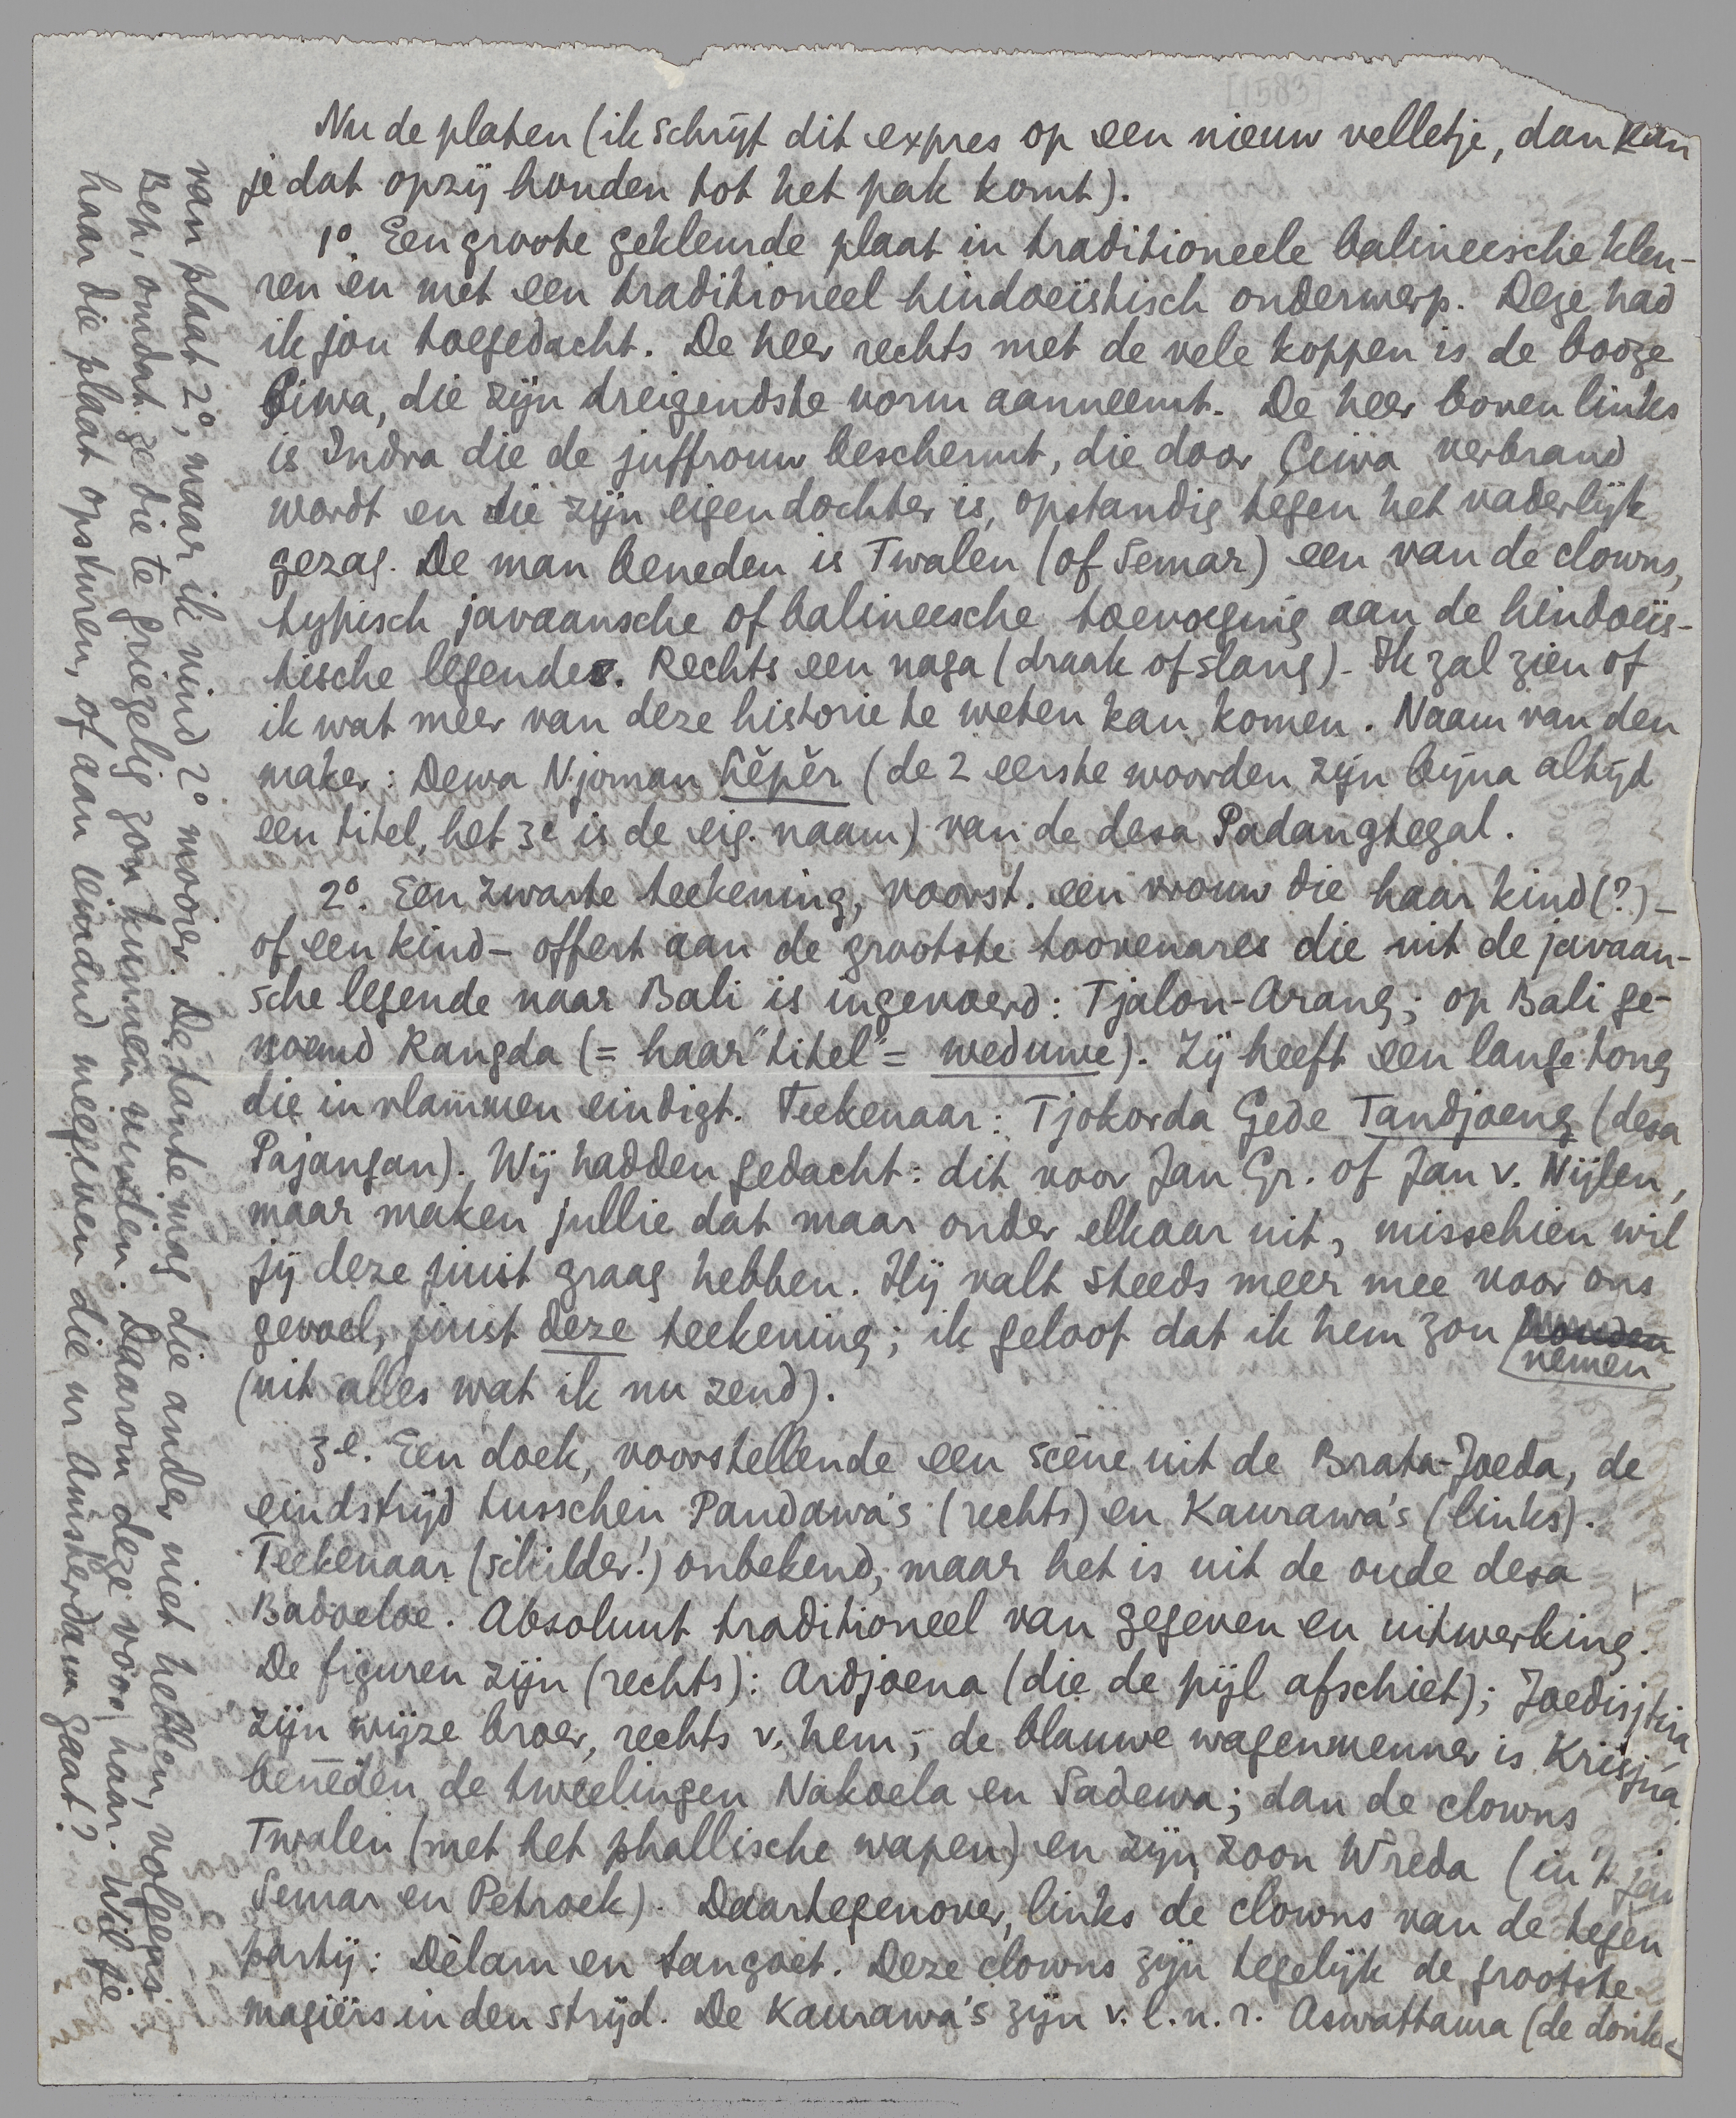 [1583]
Nu de platen (ik schrijf dit expres op een nieuw velletje, dan kan
je dat opzij houden tot het pak komt).
1º. Een groote gekleurde plaat in traditioneele balineesche kleu-
ren en met een traditioneel hindoeïstisch onderwerp. Deze had
ik jou toegedacht. De heer rechts met de vele koppen is de booze
Çiwa, die zijn dreigendste vorm aanneemt. De heer boven links
is Indra die de juffrouw beschermt, die door Çiwa verbrand
wordt en die zijn eigen dochter is, opstandig tegen het vaderlijk
gezag. De man beneden is Twalen (of Semar) een van de clowns,
typisch javaansche of balineesche toevoeging aan de hindoeïs-
tische legende. Rechts een naga (draak of slang). Ik zal zien of
ik wat meer van deze historie te weten kan komen. Naam van den
maker: Dewa Njoman (de 2 eerste woorden zijn bijna altijd
een titel, het 3e is de eig. naam) van de desa Padangtegal.
2º. Een zwarte teekening, voorst. een vrouw die haar kind (?) –
of een kind – offert aan de grootste toovenares die uit de javaan-
sche legende naar Bali is ingevoerd: Tjalon-Arang; op Bali ge-
noemd Rangda (= haar "titel" = weduwe). Zij heeft een lange tong
die in vlammen eindigt. Teekenaar: Tjokorda Gede Tandjoeng (desa
Pajangan). Wij hadden gedacht: dit voor Jan Gr. of Jan v. Nijlen,
maar maken jullie dat maar onder elkaar uit, misschien wil
jij deze juist graag hebben. Hij valt steeds meer mee voor ons
gevoel, juist deze teekening; ik geloof dat ik hem zou houden
nemen
(uit alles wat ik nu zend).
3e. Een doek, voorstellende een scène uit de Brata-Joeda, de
eindstrijd tusschen Pandawa's (rechts) en Kaurawa's (links).
Teekenaar (schilder!) onbekend, maar het is uit de oude desa
Badoeloe. Absoluut traditioneel van gegeven en uitwerking.
De figuren zijn (rechts): Ardjoena (die de pijl afschiet); Joedisjtira
zijn wijze broer, rechts v. hem; de blauwe wagenmenner is Krisjna
beneden de tweelingen Nakoela en Sadewa; dan de clowns
Twalen (met het phallische wapen) en zijn zoon Wreda (in 't jav
Semar en Petroek). Daartegenover, links de clowns van de tegen
partij: Dèlam en Sangoet. Deze clowns zijn tegelijk de grootste
magiërs in den strijd. De Kaurawa's zijn v. l. n. r. Aswattama (de donke
van plaat 2º, maar ik vind 2º mooier. De tante mag die ander niet hebben, volgens
Bep, omdat ze die te griezelig zou kunnen vinden. Daarom deze voor haar. Wil je
haar die plaat opsturen, of aan iemand meegeven die nr Amsterdam gaat?